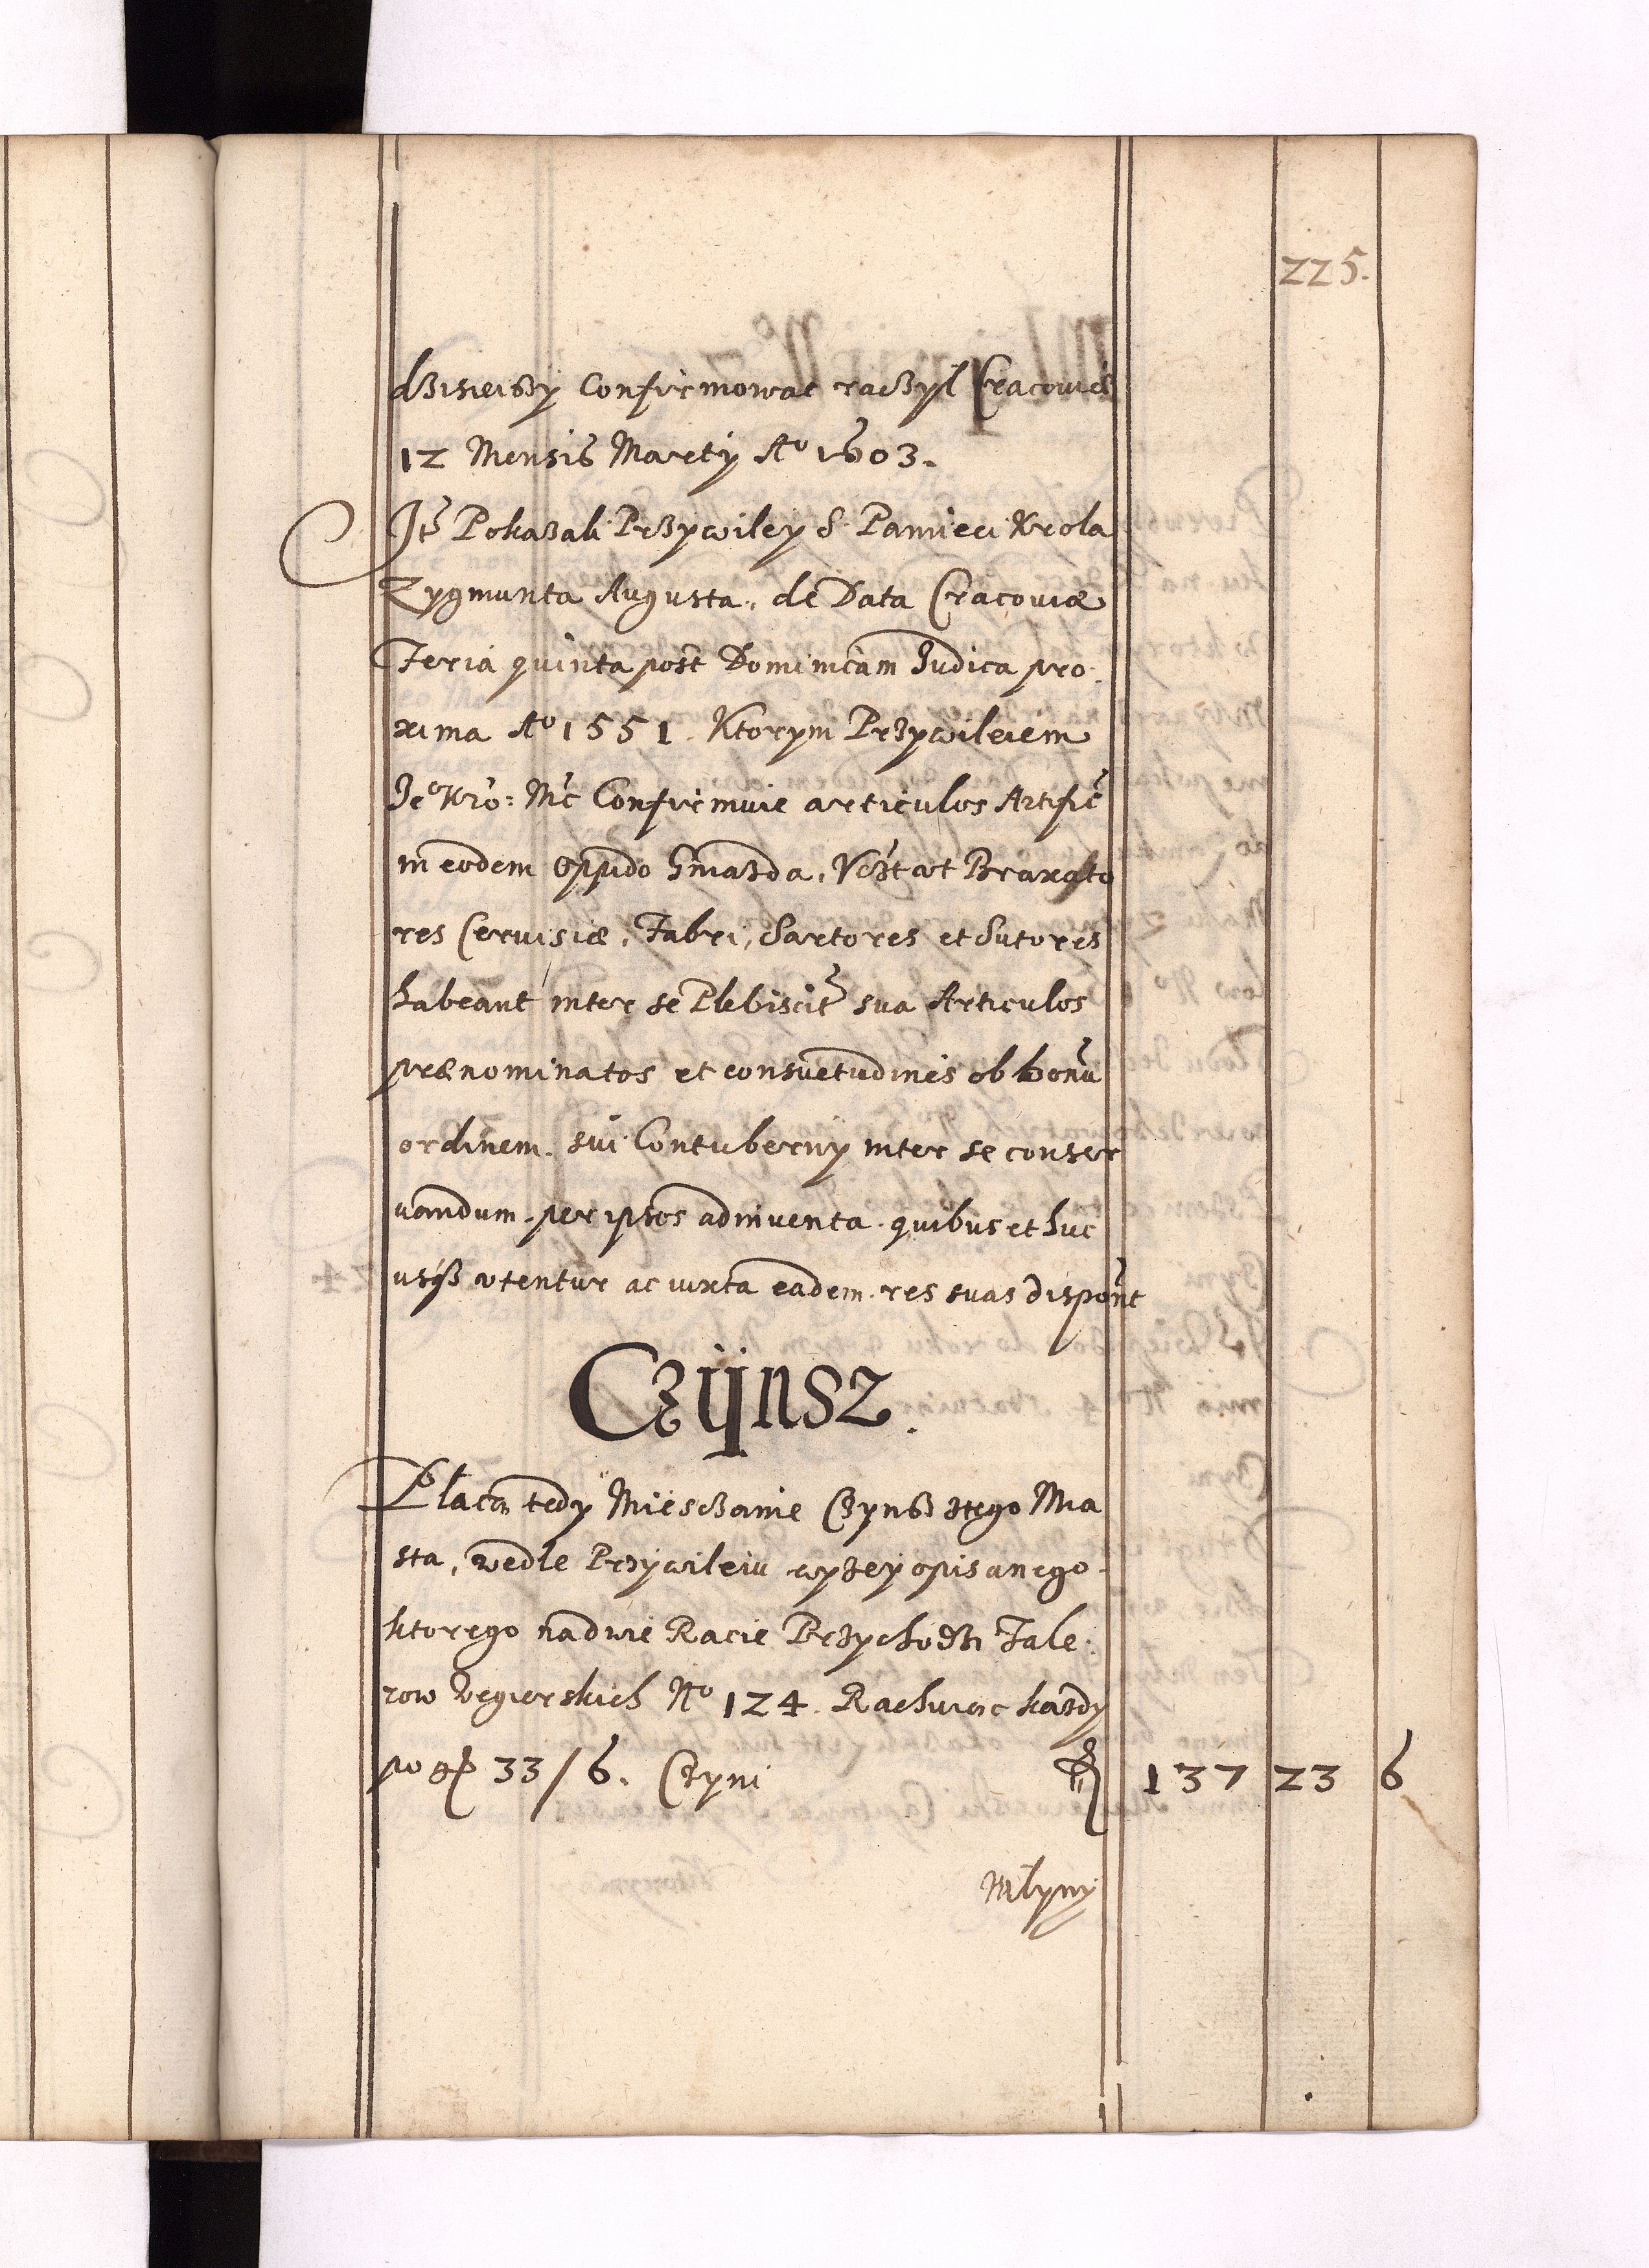 225.
dzisieiszy Confirmowac raczyl Cracouiæ
12 Mensis Martij A° 1603.
Itẽ Pokazali Przywiley S. Pamieci Krola
Zygmunta Augusta, de Data Cracouiæ
Feria quinta post Dominicam Judica pro.
xima A° 1551. Ktorym Przywileiem
Je° Kró: Mc Confirmuie articulos Artific̃
in eodem oppido Gniazda, Vt Braxato
res Ceruisiæ, Fabri, Sartores et Sutores
habeant inter se Plebiscit̃ sua Articulos
prænominatos et consuetudines ob bonũ
ordinem. sui Contubernij inter se conser
uandum. per ipsos adinuenta. quibus et huc
usqȝ vtentur ac iuxta eadem. res suas dispont̃
Czÿnsz.
Placą tedy Miesczanie Czynsz stego Mia
sta, wedle Przywileiu wyzey opisanego.
ktorego nadwie Racie Przychodzi Tale.
row Vegierskich N° 124. Rachuiąc kazdy
po gr 33/6. Czyni fl 137 23 6
Mlyny